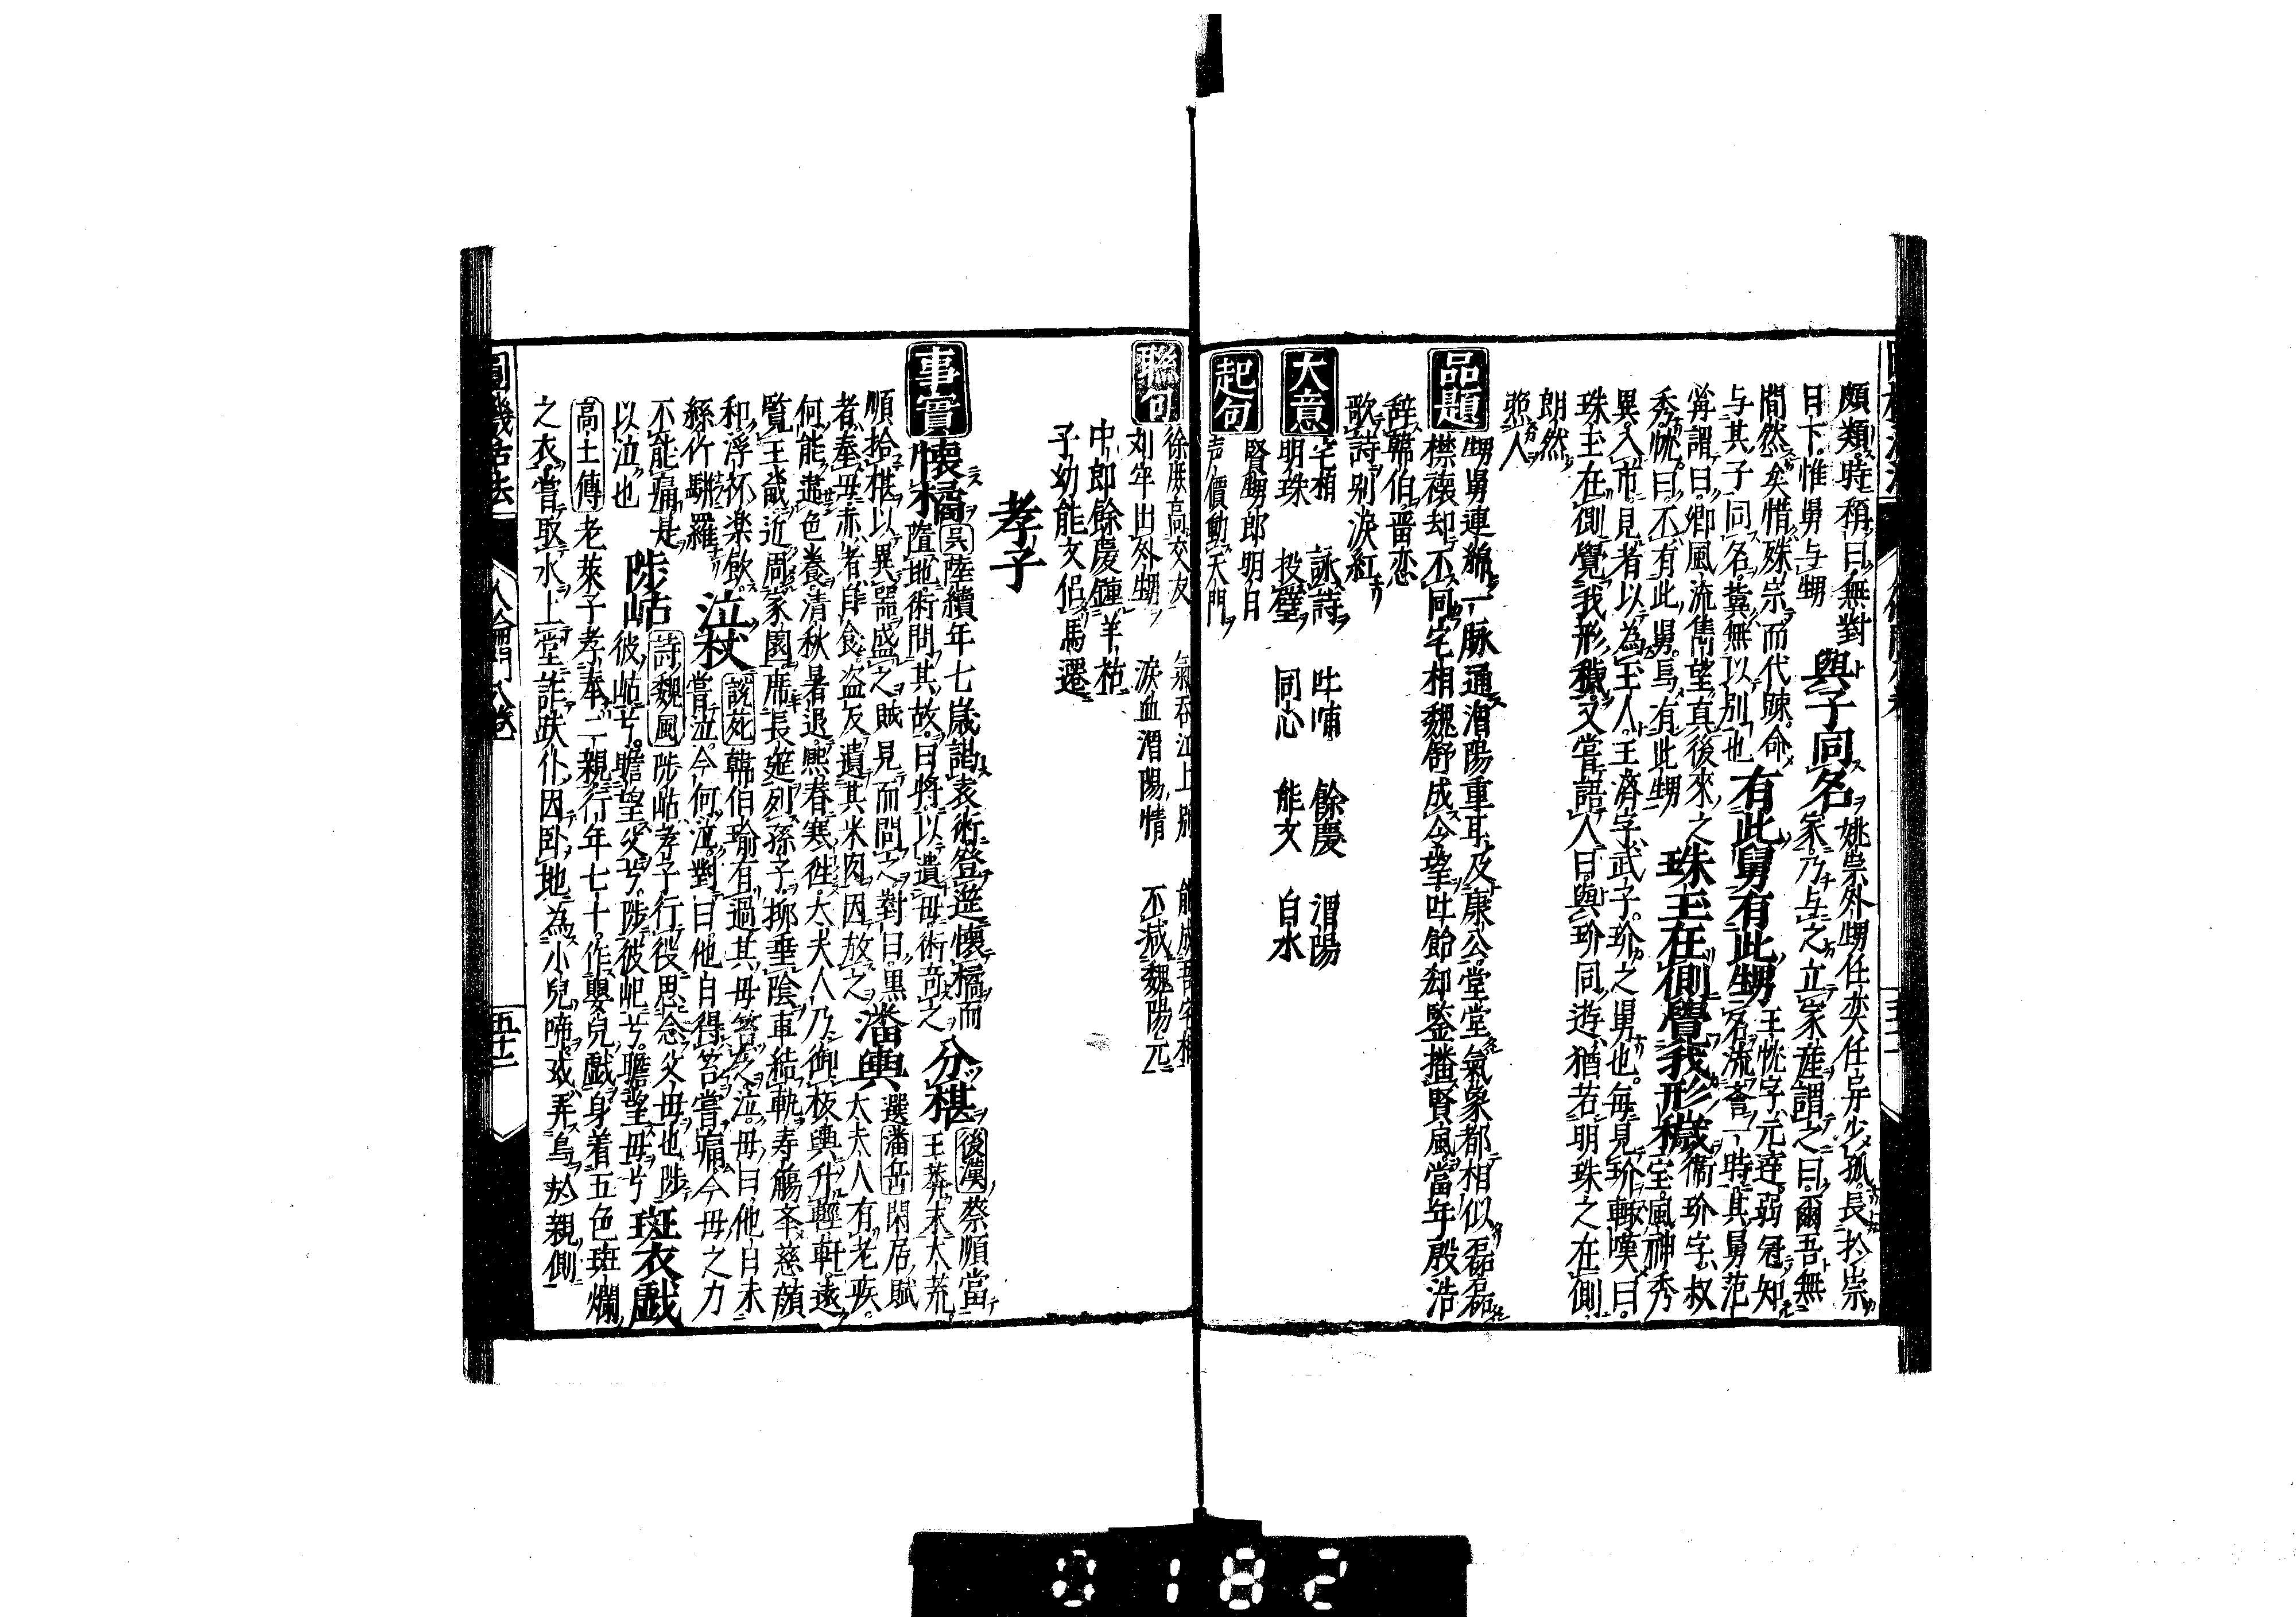 頗類時稱曰無對 與子同名 姚崇外甥任奕任异少孤長於崇
日下惟舅与甥 家乃与之立家産謂之曰爾吾無
間然矣惜殊宗而代踈命
与其子同名冀無以別也 有此舅有此甥 王忱字元達弱冠知
名流舎一時其舅范
甯謂曰卿風流雋望真後來之
秀忱曰不有此舅焉有此甥 珠玉在側覺我形穢 衛玠字叔
宝風神秀
異入市見者以為玉人王濟字武子玠之舅也毎見玠輙嘆曰
珠玉在側覺我形穢又嘗語人曰與玠同遊猶若明珠之在側
朗然
照人
品題
甥舅連綿一脉通渭陽重耳及康公堂堂氣象都相似磊磊
襟褱却不同宅相魏舒成令望吐飴却鑒播賢風當年殷浩
辞韓伯畨恋
歌詩別淚紅
大意
宅相 詠詩 吐哺 餘慶 渭陽
明珠 投璧 同心 能文 自水
起句
賢甥郎明白
声價動天門
聯句
徐庶高交友 氣吞江上
刘牢出外甥 淚血渭陽情 不減魏陽元
中郎餘慶鍾羊祜
子幼能文侶馬遷
孝子
事實
懷橘 吳陸續年七歲謁袁術登筵懷橘而
隨地術問其故曰將以遺母術奇之 分椹 後漢蔡順當
王莽末大荒
順拾椹以異器盛之賊見而問之對曰黒
者奉母赤者自食盗反遺其米肉因放之 潘輿 選潘岳閑居賦
太夫人有老疾
何能違色養清秋暑退熈春寒徃大夫人乃御板輿升輕軒遠
覧王畿近周家園席長筵列孫子栁垂陰車結軌寿觴夅慈顔
和浮杯楽飲
絲竹駢羅 泣杖 說苑韓伯瑜有過其母笞之泣母曰他日未
嘗泣今何泣對曰他日得笞嘗痛今母之力
不能痛是
以泣也 陟岵 詩魏風陟岵孝子行役思念父母也陟
彼岵兮瞻望父兮陟彼屺兮瞻望母兮 斑衣戯
高士傳老萊子孝奉二親行年七十作嬰兒戯身着五色斑斕
之衣嘗取水上堂詐跌仆因卧地為小兒啼或弄鳥於親側
人倫門八巻
五十二
0182